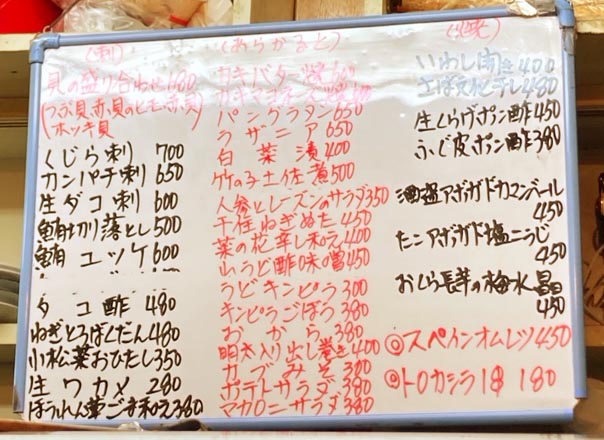 (刺)
貝の盛り合わせ 680
(つぶ貝,赤貝のヒモ,赤貝
ホッキ貝)
くじら刺 700
カンパチ刺 650
生ダコ刺 600
鮪切り落とし 500
鮪ユッケ 600
タコ酢 480
ねぎとろばくだん 480
小松菜おひたし 350
生ワカメ 280
ほうれん草ごま和え 380
(あらかると)
カキバター焼 600
カキマヨネーズ焼
パングラタン 650
ラザニア 650
白菜漬 400
竹の子土佐煮 500
人参とレーズンのサラダ 350
千住ねぎぬた 450
菜の花辛し和え 400
山うど酢味噌 450
うどキンピラ 300
キンピラごぼう 380
おから 380
明太入り出し巻き 400
カブみそ 300
ポテトサラダ 380
マカロニサラダ 380
(焼)
いわし 400
さば文化干し 480
生くらげポン酢 450
ふぐ皮ポン酢 380
酒盗アボガドカマンベール
450
たこアボガド塩こうじ
450
おくら長芋の梅水晶
450
◎スペインオムレツ 450
◎トロカシラ 1本 180